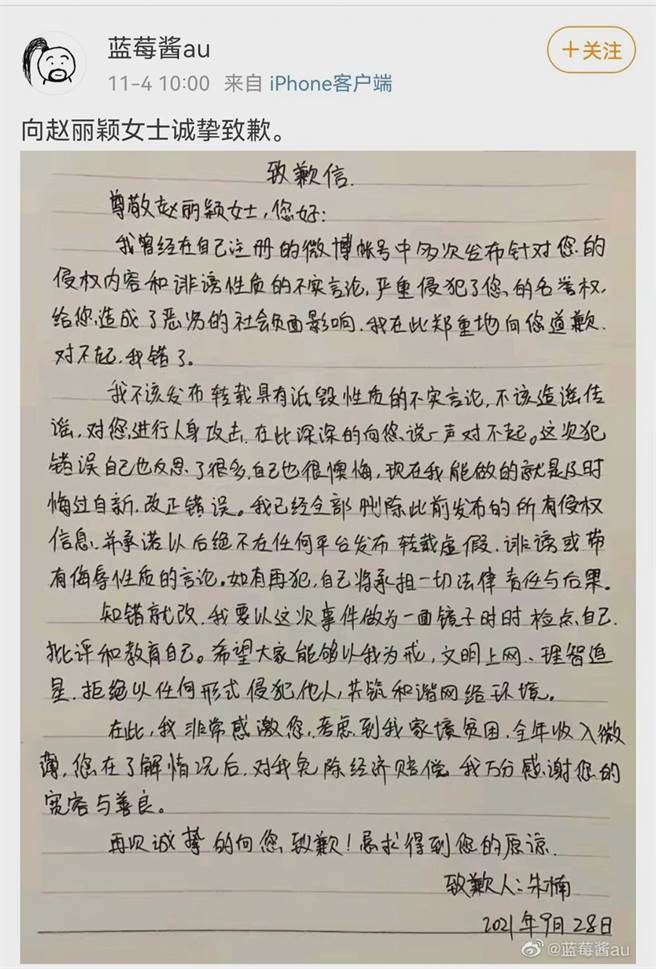 蓝莓酱au
+关注
11-4 10:00 来自 iPhone客户端
向赵丽颖女士诚挚致歉。
致歉信.
尊敬赵丽颖女士,您好:
我曾经在自己注册的微博帐号中多次发布针对您的
侵权内容和诽谤性质的不实言论,严重侵犯了您的名誉权,
给您造成了恶劣的社会负面影响.我在此郑重地向您道歉.
对不起.我错了。
我不该发布转载具有诋毁性质的不实言论,不该造谣传
谣,对您进行人身攻击,在此深深的向您说一声对不起。这次犯
错误自己也反思了很多,自己也很懊悔,现在我能做的就是及时
悔过自新.改正错误。我已经全部删除此前发布的所有侵权
信息,并承诺以后绝不在任何平台发布转载虚假、诽谤或带
有侮辱性质的言论。如有再犯,自己将承担一切法律责任与后果。
知错就改,我要以这次事件做为一面镜子时时检点自己.
批评和教育自己。希望大家能够以我为戒,文明上网、理智追
星.拒绝以任何形式侵犯他人,共筑和谐网络环境。
在此,我非常感激您,考虑到我家境贫困.全年收入微
薄,您在了解情况后,对我免除经济赔偿,我万分感谢您的
宽容与善良。
再次诚挚的向您致歉!恳求得到您的原谅.
致歉人:朱楠
2021年9月28日
@蓝莓酱au